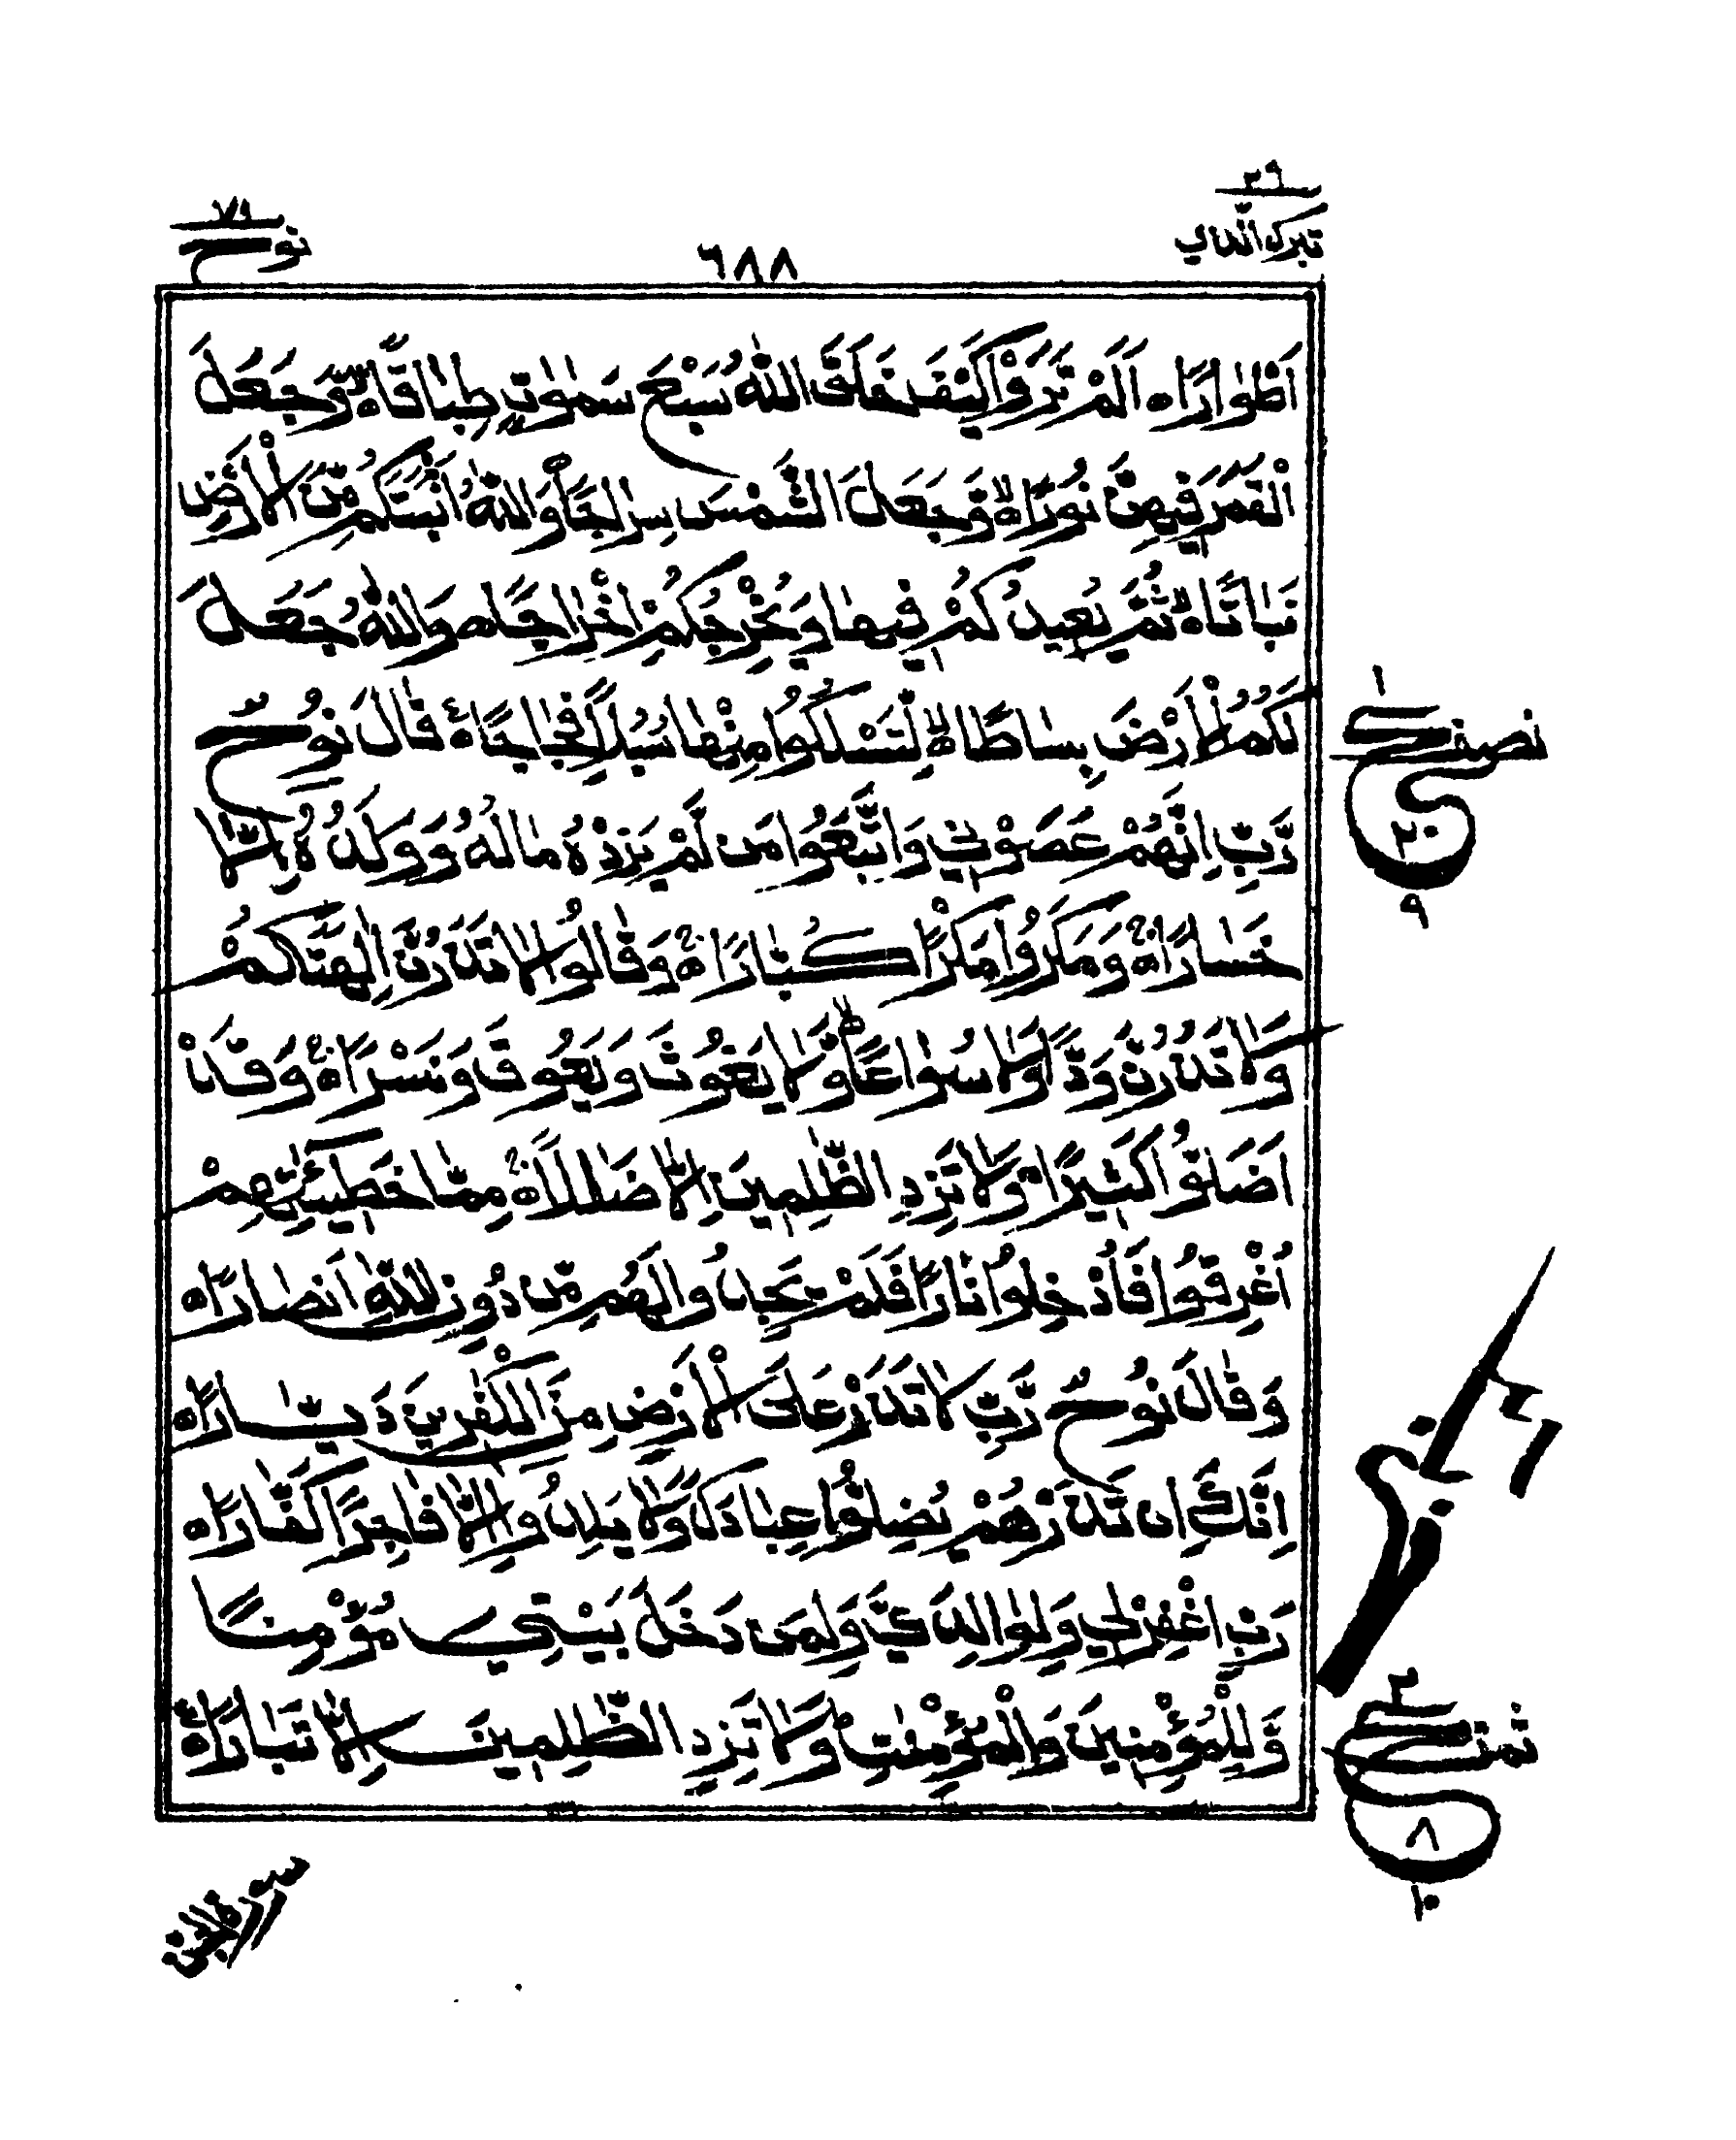 ٢٩
تبرك الذي
٦٨٨
٧١
نوح
اَطْوَارًا ہ اَلَمْ تَرَوْا كَيْفَ خَلَقَ اللّٰهُ سَبْعَ سَمٰوٰتٍ طِبَاقًا ہ وَّجَعَلَ
الْقَمَرَ فِيْهِنَّ نُوْرًا ہ وَّجَعَلَ الشَّمْسَ سِرَاجًا وَاللّٰهُ اَنْۢبَتَكُمْ مِّنَ الْاَرْضِ
نَبَاتًا ہ ثُمَّ يُعِيْدُكُمْ فِيْهَا وَيُخْرِجُكُمْ اِخْرَاجًا ہ وَاللّٰهُ جَعَلَ
لَكُمُ الْاَرْضَ بِسَاطًا ہ لِّتَسْلُكُوْا مِنْهَا سُبُلًا فِجَاجًا ہ قَالَ نُوْحٌ
رَّبِّ اِنَّهُمْ عَصَوْنِيْ وَاتَّبَعُوْا مَنْ لَّمْ يَزِدْهُ مَالُهٗ وَوَلَدُهٗٓ اِلَّا
خَسَارًا ہ وَمَكَرُوْا مَكْرًا كُبَّارًا ہ وَقَالُوْا لَا تَذَرُنَّ اٰلِهَتَكُمْ
وَلَا تَذَرُنَّ وَدًّا وَّلَا سُوَاعًا وَّلَا يَغُوْثَ وَيَعُوْقَ وَنَسْرًا ہ وَقَدْ
اَضَلُّوْا كَثِيْرًا وَلَا تَزِدِ الظّٰلِمِيْنَ اِلَّا ضَلٰلًا ہ مِمَّا خَطِيْٓئٰتِهِمْ
اُغْرِقُوْا فَاُدْخِلُوْا نَارًا فَلَمْ يَجِدُوْا لَهُمْ مِّنْ دُوْنِ اللّٰهِ اَنْصَارًا ہ
وَقَالَ نُوْحٌ رَّبِّ لَا تَذَرْ عَلَى الْاَرْضِ مِنَ الْكٰفِرِيْنَ دَيَّارًا ہ
اِنَّكَ اِنْ تَذَرْهُمْ يُضِلُّوْا عِبَادَكَ وَلَا يَلِدُوْٓا اِلَّا فَاجِرًا كَفَّارًا ہ
رَبِّ اغْفِرْ لِيْ وَلِوَالِدَيَّ وَلِمَنْ دَخَلَ بَيْتِيَ مُؤْمِنًا
وَّلِلْمُؤْمِنِيْنَ وَالْمُؤْمِنٰتِ وَلَا تَزِدِ الظّٰلِمِيْنَ اِلَّا تَبَارًا ہ
١
نصف
ع
٢٠
٩
٢
ع
٨
١٠